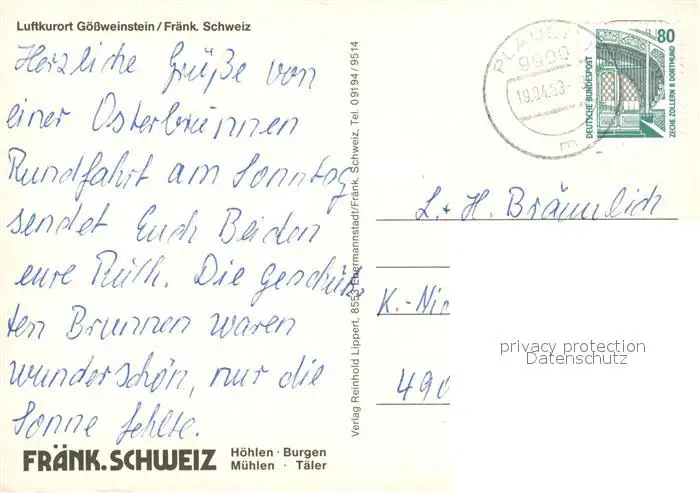 Luftkurort Gößweinstein/Fränk. Schweiz
Herzliche Grüße von
einer Osterbrunnen
Rundfahrt am Sonntag
sendet Euch Beiden
eure Ruth. Die geschmück-
ten Brunnen waren
wunderschön, nur die
Sonne fehlte.
FRÄNK. SCHWEIZ
Höhlen · Burgen
Mühlen · Täler
Verlag Reinhold Lippert, 8553 Ebermannstadt/Fränk. Schweiz, Tel. 09194/9514
PLAUEN
9900
19.04.93
m
80
DEUTSCHE BUNDESPOST
ZECHE ZOLLERN II DORTMUND
L. + H. Bräunlich
K.-Nie
490
privacy protection
Datenschutz